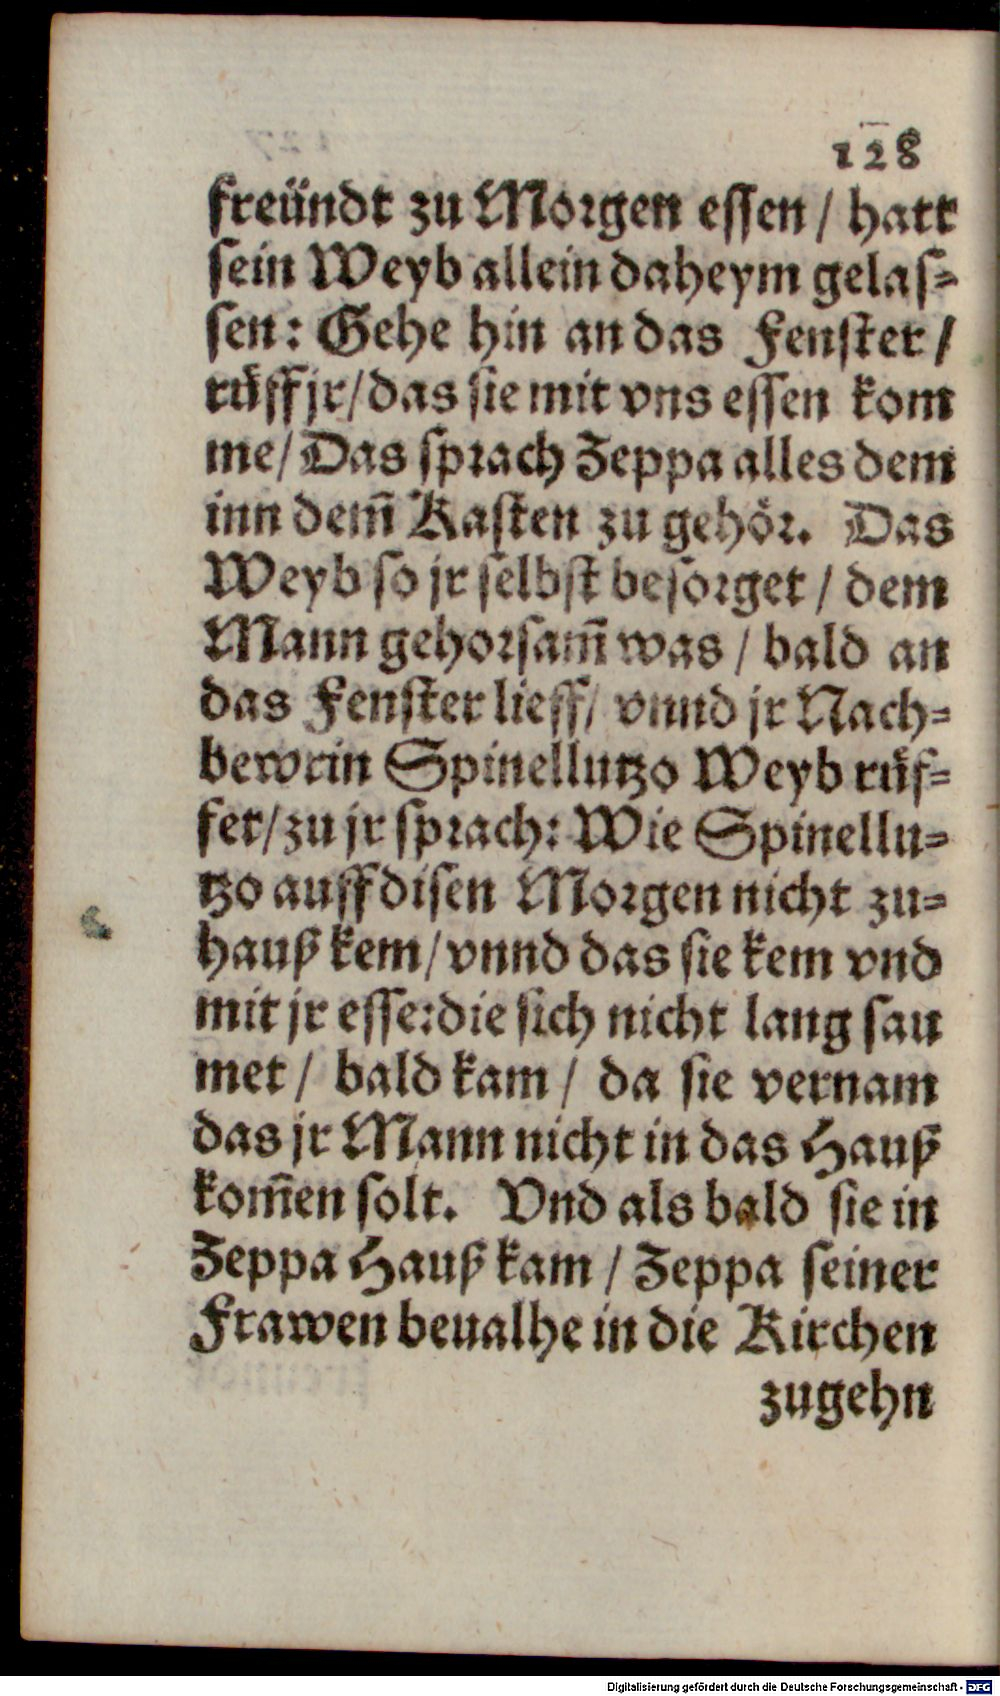 128
freündt zu Morgen essen / hatt
sein Weyb allein daheym gelas-
sen: Gehe hin an das Fenster /
rüff jr / das sie mit vns essen kom
me / Das sprach Zeppa alles dem
inn dem̄ Kasten zu gehör. Das
Weyb so jr selbst besorget / dem
Mann gehorsam̄ was / bald an
das Fenster lieff / vnnd jr Nach-
bewrin Spinellutzo Weyb rüf-
fet / zu jr sprach: Wie Spinellu-
tzo auff disen Morgen nicht zu-
hauß kem / vnnd das sie kem vnd
mit jr esse: die sich nicht lang sau
met / bald kam / da sie vernam
das jr Mann nicht in das Hauß
kom̄en solt. Vnd als bald sie in
Zeppa Hauß kam / Zeppa seiner
Frawen beualhe in die Kirchen
zugehn
Digitalisierung gefördert durch die Deutsche Forschungsgemeinschaft - DFG